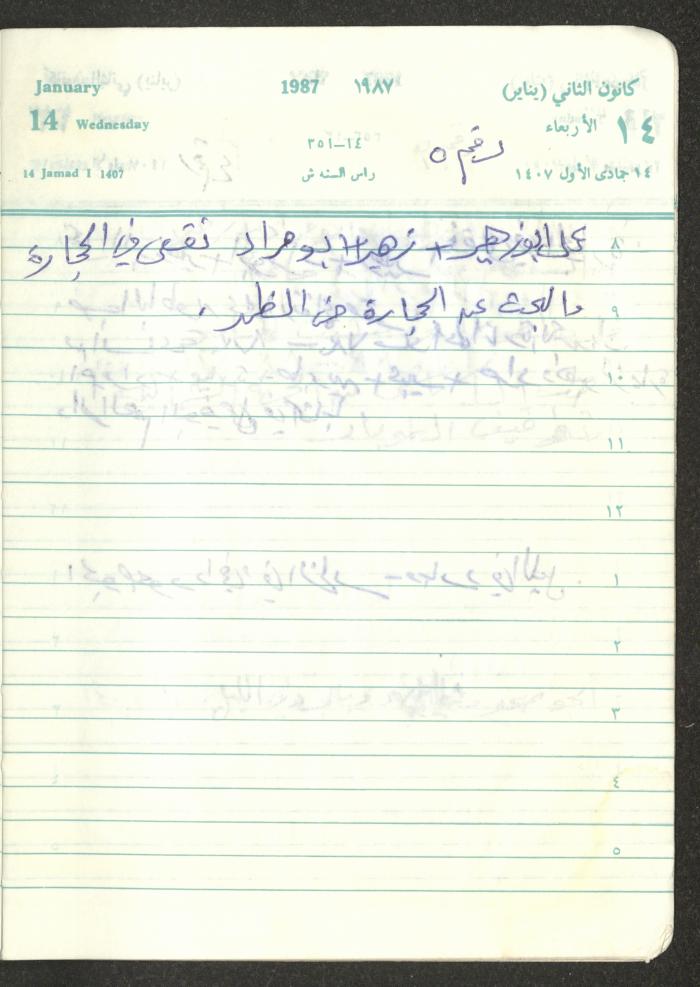 January 1987 ١٩٨٧ كانون الثاني (يناير)
14 Wednesday ١٤ الأربعاء
١٤–٣٥١
رقم ٥
14 Jamad I 1407 راس السنه ش ١٤ جمادى الأول ١٤٠٧
٨ على ابو زهير + زهير + ابو مراد نقعى في الحجارة
٩ والبحث عن الحجارة من الظهر .
١٠
١١
١٢
١
٢
٣
٤
٥